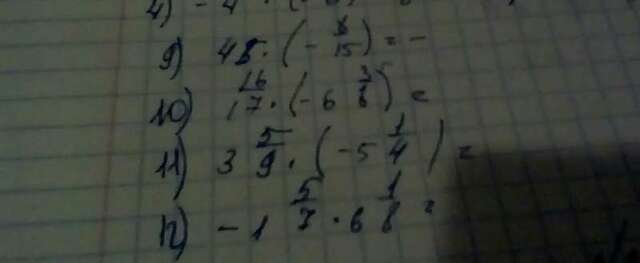 9) 45 · (- 8/15) = -
10) 1 16/17 · (- 6 3/8) =
11) 3 5/9 · (- 5 1/4) =
12) - 1 5/7 · 6 1/8 =